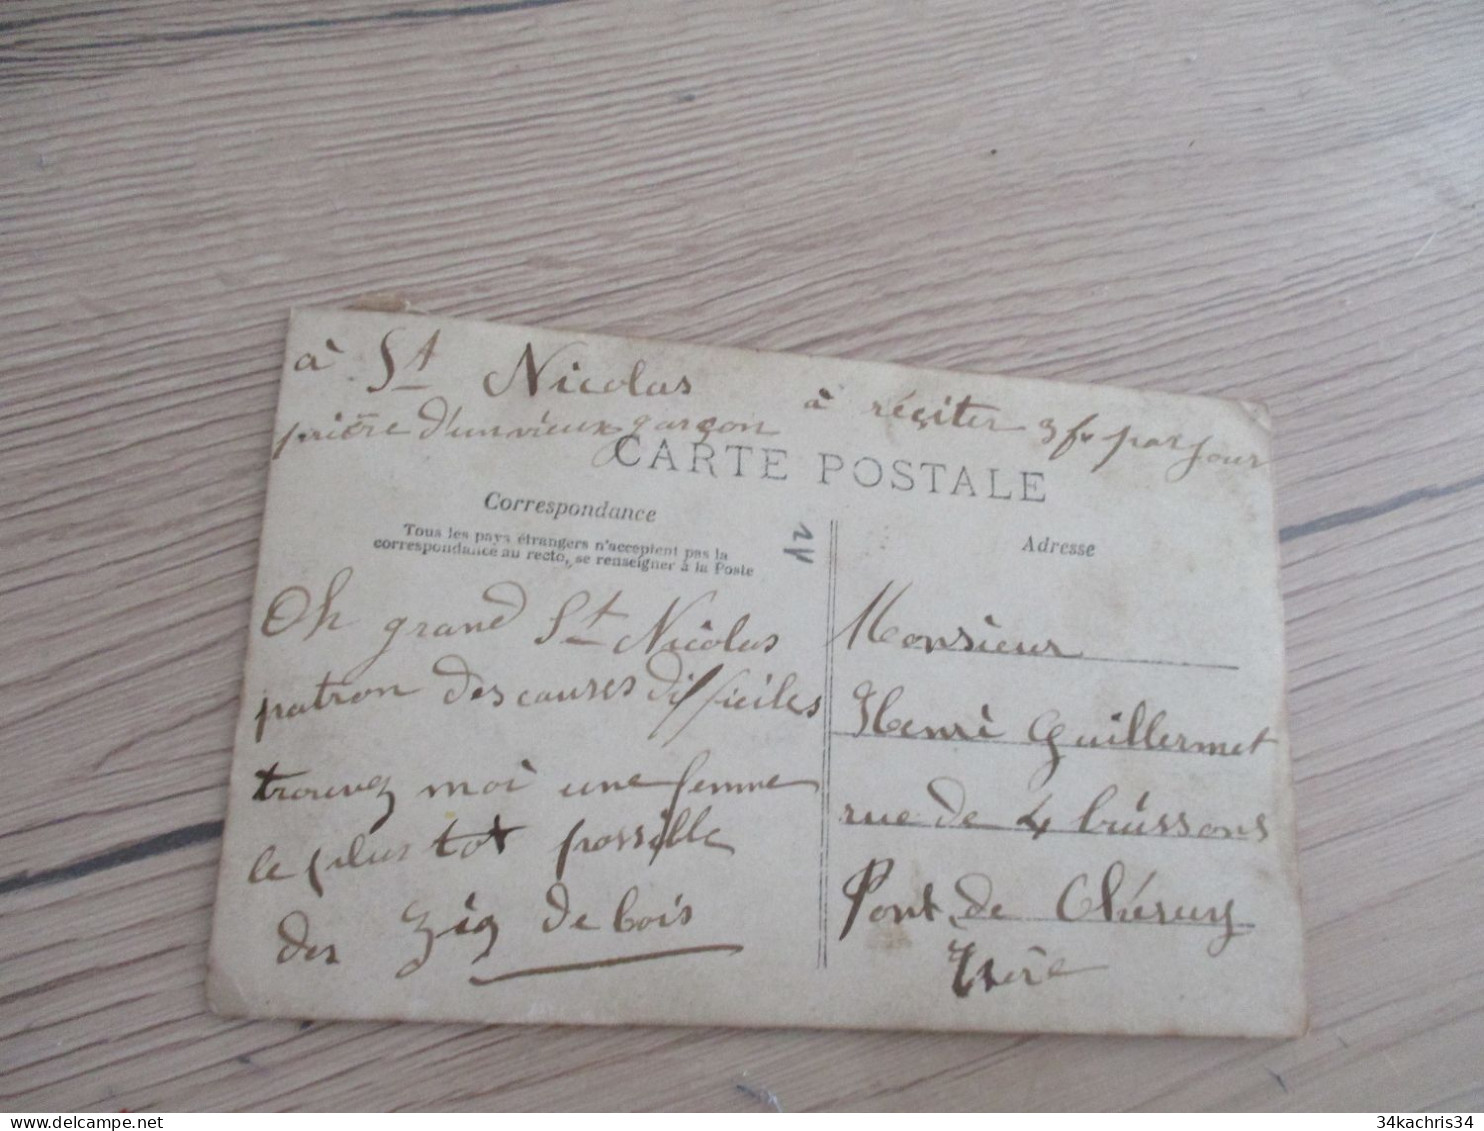 à St Nicolas
prière d'un vieux garçon
à réciter 3 fs par jour
CARTE POSTALE
Correspondance
Tous les pays étrangers n'acceptent pas la
correspondance au recto, se renseigner à la Poste
Oh grand St Nicolas
patron des causes difficiles
trouvez moi une femme
le plus tot possible
des zig de bois
Adresse
Monsieur
Henri Guillermet
rue de 4 buissons
Pont de Chéruy
Isère
34kachris34